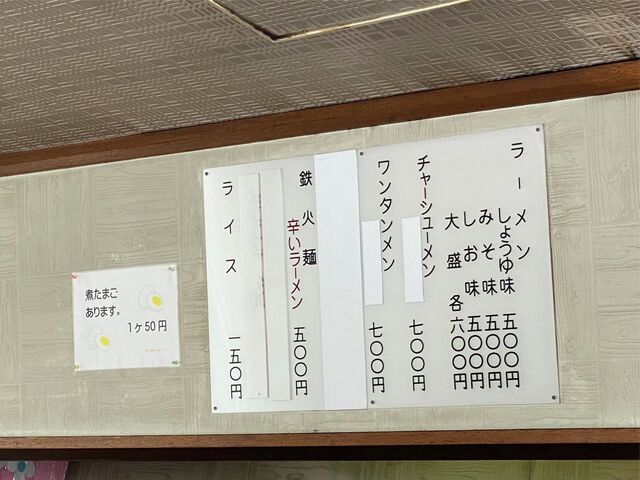 ラーメン
しょうゆ味 五〇〇円
みそ味 五〇〇円
しお味 五〇〇円
大盛各六〇〇円
チャーシューメン 七〇〇円
ワンタンメン 七〇〇円
鉄火麺
辛いラーメン 五〇〇円
ライス 一五〇円
煮たまご
あります。
1ヶ50円